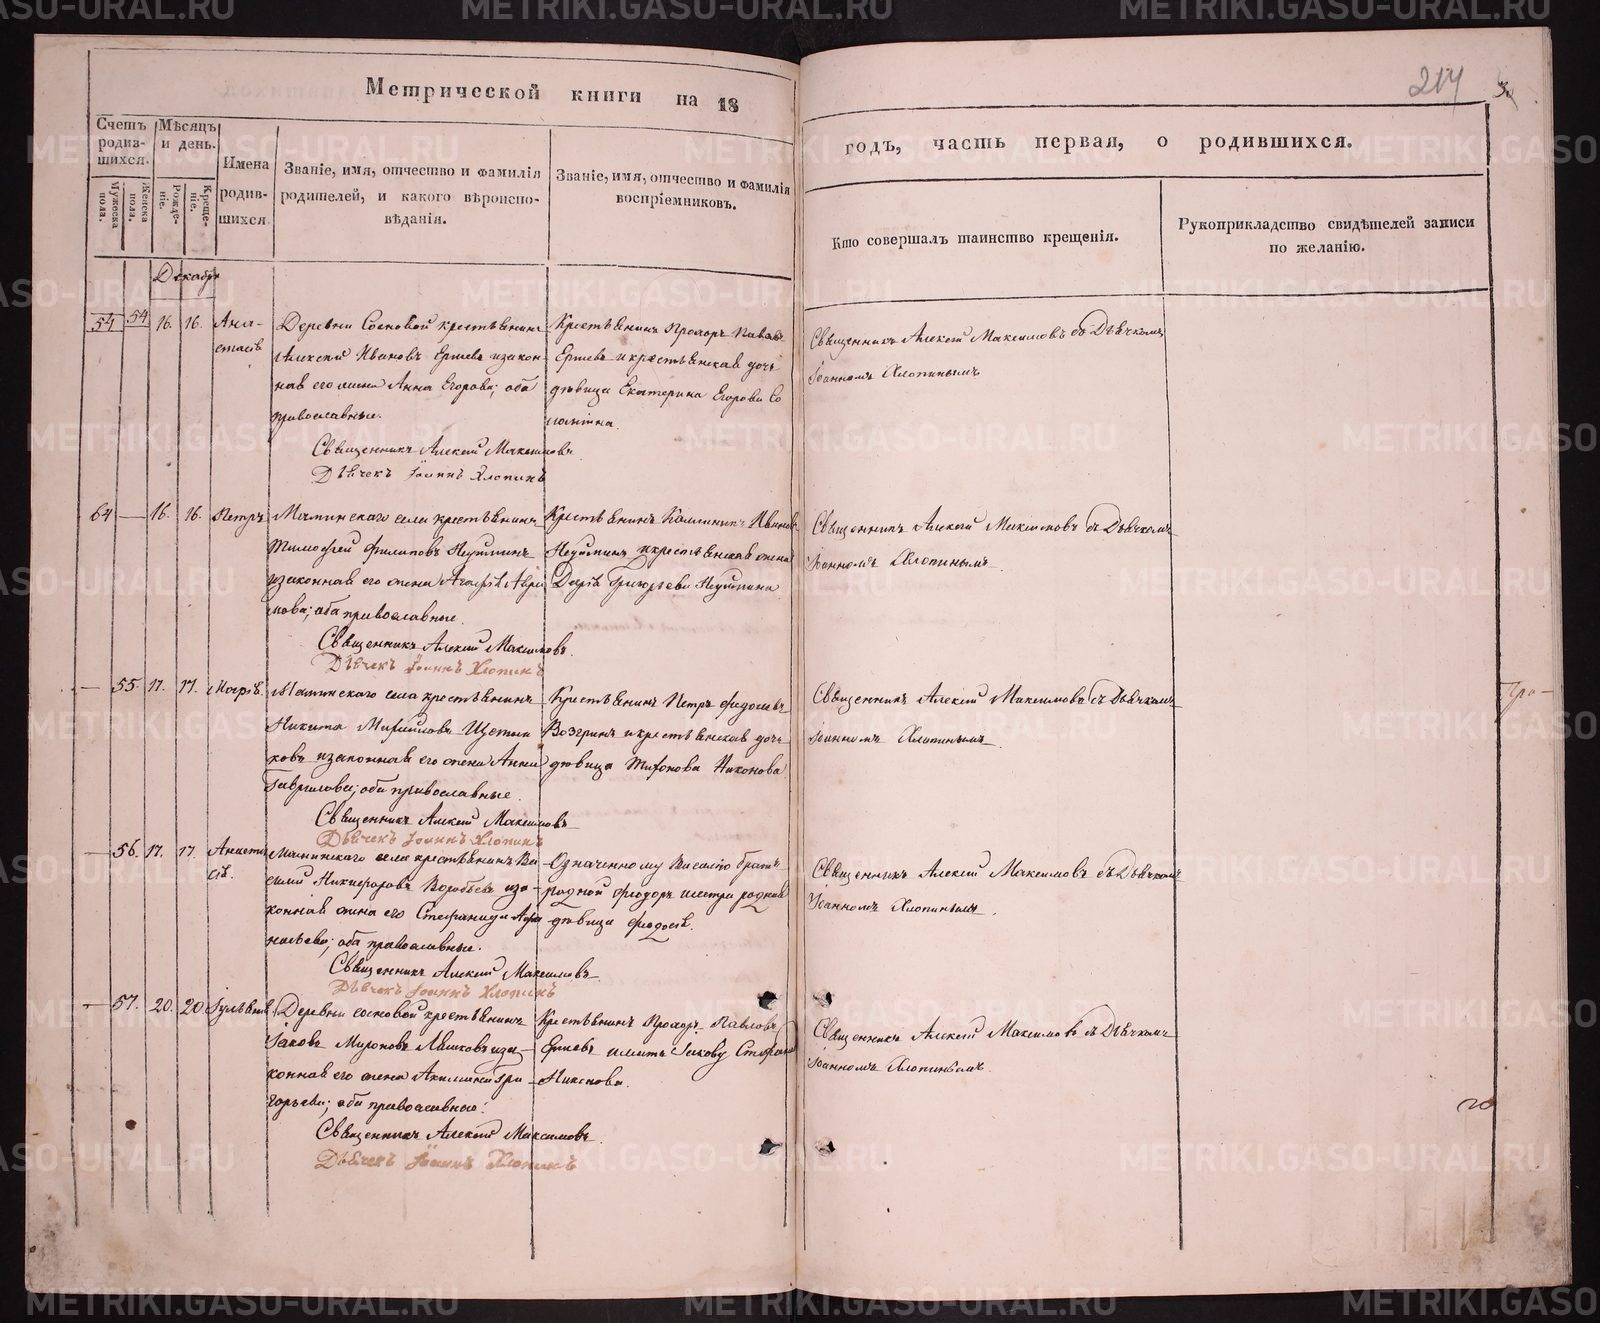 Метрической книги на 18
годъ, часть первая, о родившихся.
217
Счетъ родив-шихся.
Мужеска пола.
Женска пола.
Мѣсяцъ и день.
Рожде-ніе.
Креще-ніе.
Имена родив-шихся.
Званіе, имя, отчество и фамилія
родителей, и какого вѣроиспо-
вѣданія.
Званіе, имя, отчество и фамилія
воспріемниковъ.
Кто совершалъ таинство крещенія.
Рукоприкладство свидѣтелей записи
по желанію.
Декабрь
54 54 16. 16. Ана-
стасія
Деревни Сосновой крестьянинъ
Алексей Ивановъ Ершевъ и закон-
ная его жена Анна Егорова; оба
православные.
Священникъ Алексій Максимовъ
Дьячекъ Іоаннъ Хлопинъ
Крестьянинъ Прохоръ Павловъ
Ершевъ и крестьянская дочь
дѣвица Екатерина Егорова
Священникъ Алексій Максимовъ съ Дьячкомъ
Іоанномъ Хлопинымъ
64 — 16. 16. Петръ
Маминскаго села крестьянинъ
Тимофей Филиповъ
и законная его жена Агафія Авра
мова; оба православные.
Священникъ Алексій Максимовъ.
Дьячекъ Іоаннъ Хлопинъ
Крестьянинъ Ивановъ
и крестьянская жена
Дарія Григорьева
Священникъ Алексій Максимовъ съ Дьячкомъ
Іоанномъ Хлопинымъ.
— 55. 17. 17. Марія.
Маминскаго села крестьянинъ
Никита Михайловъ Щетни
ковъ и законная его жена Анна
Гаврилова; оба православные.
Священникъ Алексій Максимовъ
Дьячекъ Іоаннъ Хлопинъ
Крестьянинъ Петръ Федосѣевъ
Возгринъ и крестьянская дочь
дѣвица Никонова
Священникъ Алексій Максимовъ съ Дьячкомъ
Іоанномъ Хлопинымъ.
— 56. 17. 17. Анаста
сія.
Маминскаго села крестьянинъ Ва
силій Никифоровъ Воробьевъ и за-
конная жена его Стефанида Афа
насьева; оба православные.
Священникъ Алексій Максимовъ
Дьячекъ Іоаннъ Хлопинъ
Означенному Василію братъ
родной Феодоръ и сестра родная
дѣвица Феодосія.
Священникъ Алексій Максимовъ съ Дьячкомъ
Іоанномъ Хлопинымъ.
— 57. 20. 20 Іуліанія
Деревни Сосновой крестьянинъ
Іаковъ Мироновъ и за-
конная его жена Акилина Гри
горьева; оба православные.
Священникъ Алексій Максимовъ.
Дьячекъ Іоаннъ Хлопинъ
Крестьянинъ Прохоръ Павловъ
Ершевъ и мать Іакову
Никонова.
Священникъ Алексій Максимовъ съ Дьячкомъ
Іоанномъ Хлопинымъ.
METRIKI.GASO-URAL.RU